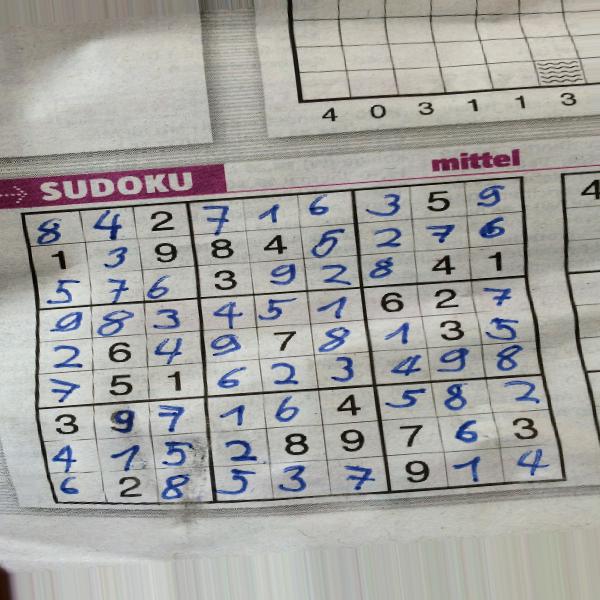 4 0 3 1 1 3
SUDOKU mittel
8 4 2 7 1 6 3 5 9
1 3 9 8 4 5 2 7 6
5 7 6 3 9 2 8 4 1
9 8 3 4 5 1 6 2 7
2 6 4 9 7 8 1 3 5
7 5 1 6 2 3 4 9 8
3 9 7 1 6 4 5 8 2
4 1 5 2 8 9 7 6 3
6 2 8 5 3 7 9 1 4
4